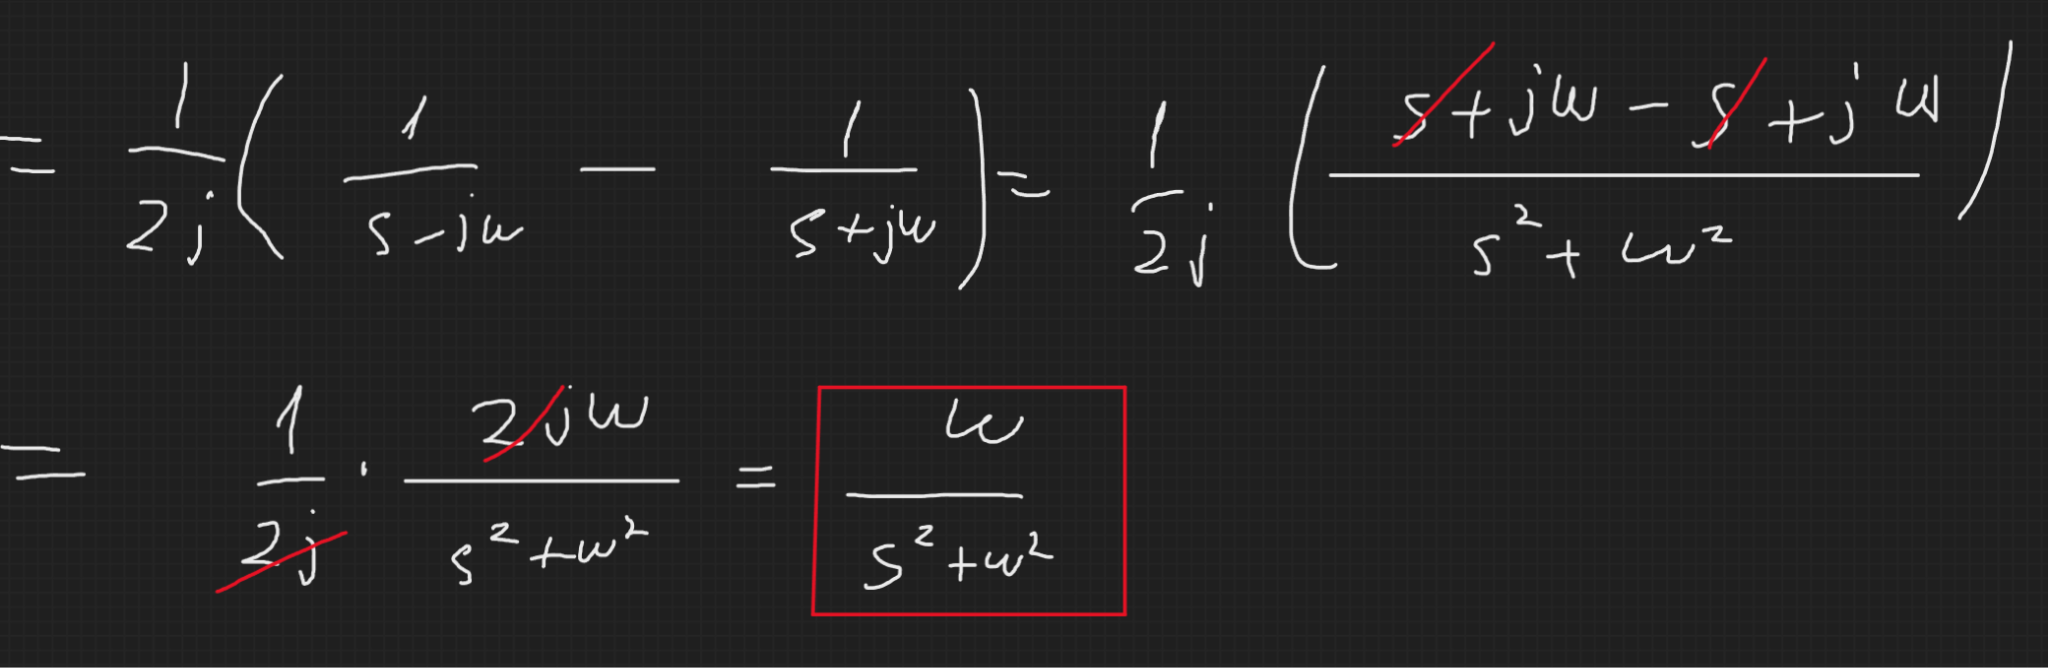 = 1/2j ( 1/(s-jω) - 1/(s+jω) ) = 1/2j ( (s+jω-s+jω)/(s²+ω²) )
= 1/2j · 2jω/(s²+ω²) = ω/(s²+ω²)